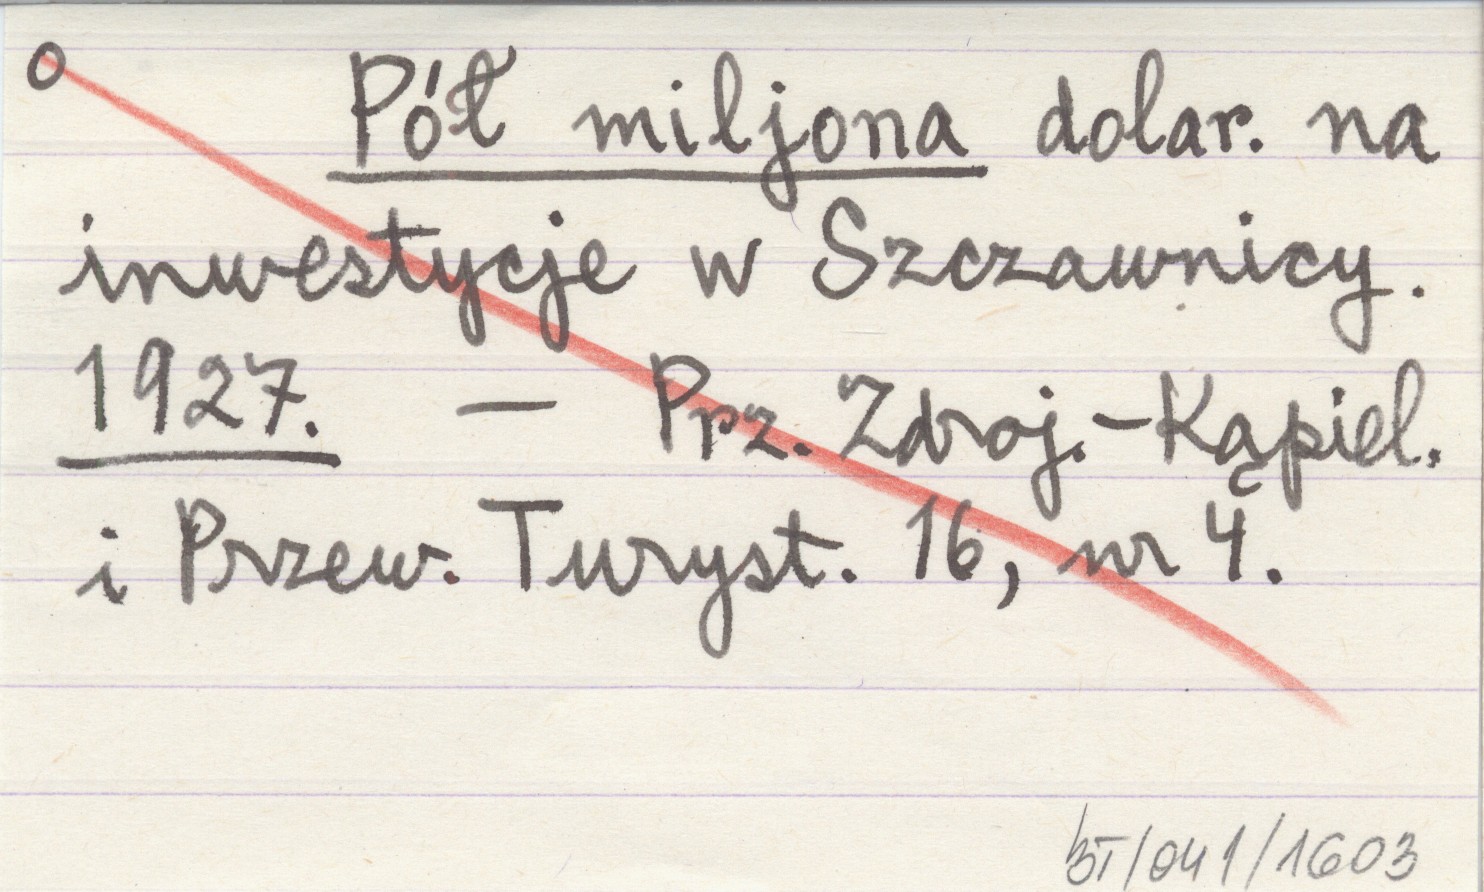 o Pół miljona dolar. na
inwestycje w Szczawnicy.
1927. — Prz. Zdroj.-Kąpiel.
i Przew. Turyst. 16, nr 4.
BT/041/1603